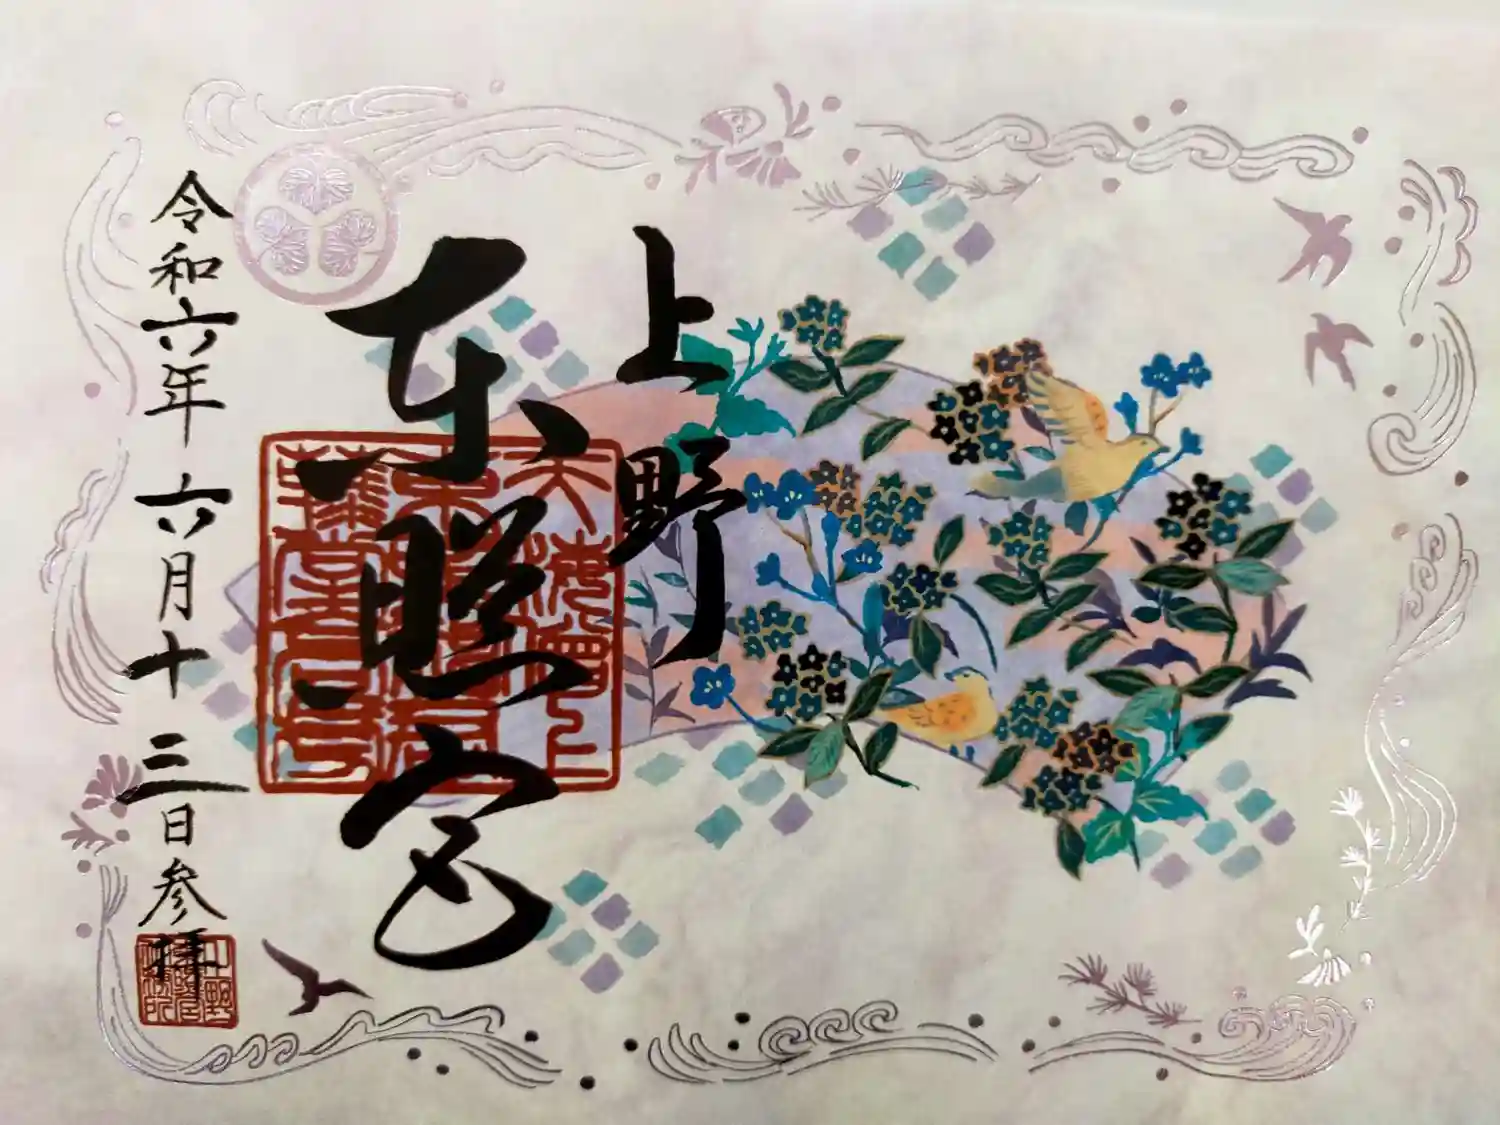 上野
東照宮
令和六年六月十三日参拝